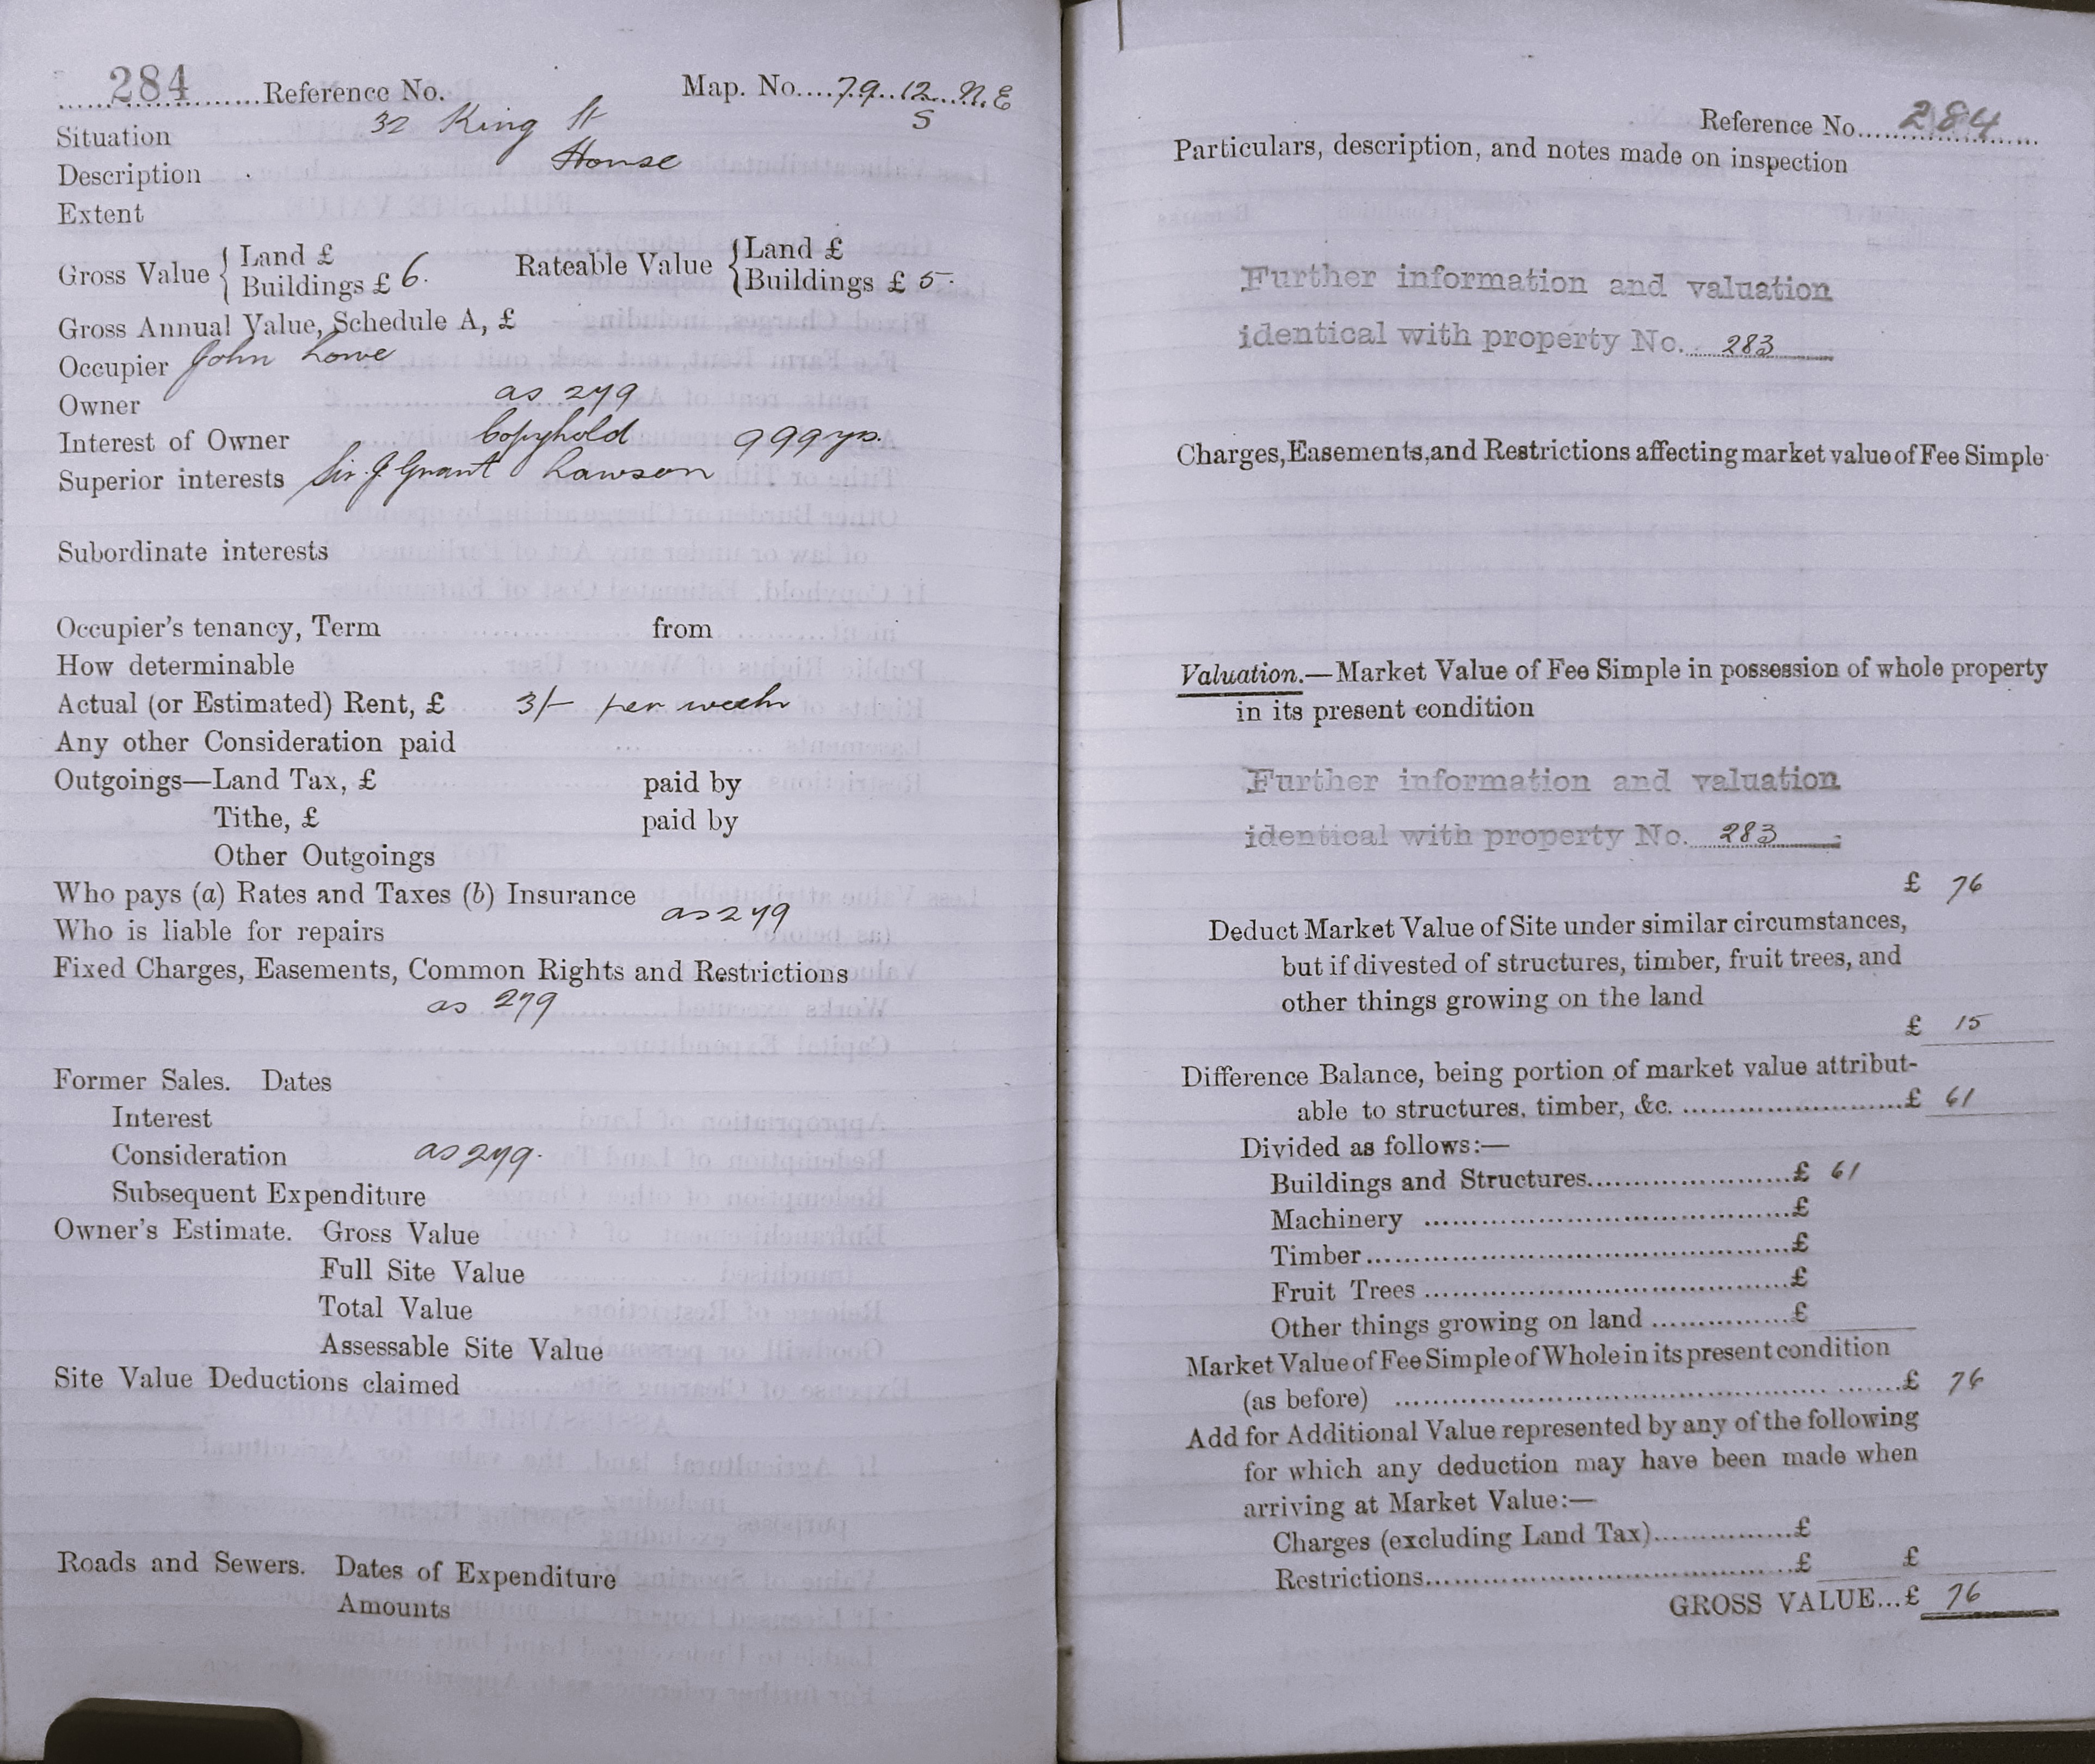 284 Reference No. Map. No. 79. 12. N.E
S
Situation 32 King St
Description House
Extent
Gross Value { Land £
Buildings £ 6. Rateable Value { Land £
Buildings £ 5.
Gross Annual Value, Schedule A, £
Occupier John Lowe
Owner as 279
Interest of Owner Copyhold 999 yrs.
Superior interests Sir J Grant Lawson
Subordinate interests
Occupier's tenancy, Term from
How determinable
Actual (or Estimated) Rent, £ 3/- per week
Any other Consideration paid
Outgoings—Land Tax, £ paid by
Tithe, £ paid by
Other Outgoings
Who pays (a) Rates and Taxes (b) Insurance
as 279
Who is liable for repairs
Fixed Charges, Easements, Common Rights and Restrictions
as 279
Former Sales. Dates
Interest
Consideration as 279.
Subsequent Expenditure
Owner's Estimate. Gross Value
Full Site Value
Total Value
Assessable Site Value
Site Value Deductions claimed
Roads and Sewers. Dates of Expenditure
Amounts
Reference No. 284
Particulars, description, and notes made on inspection
Further information and valuation
identical with property No. 283
Charges, Easements, and Restrictions affecting market value of Fee Simple
Valuation.—Market Value of Fee Simple in possession of whole property
in its present condition
Further information and valuation
identical with property No. 283
£ 76
Deduct Market Value of Site under similar circumstances,
but if divested of structures, timber, fruit trees, and
other things growing on the land
£ 15
Difference Balance, being portion of market value attribut-
able to structures, timber, &c. £ 61
Divided as follows:—
Buildings and Structures £ 61
Machinery £
Timber £
Fruit Trees £
Other things growing on land £
Market Value of Fee Simple of Whole in its present condition
(as before) £ 76
Add for Additional Value represented by any of the following
for which any deduction may have been made when
arriving at Market Value:—
Charges (excluding Land Tax) £
Restrictions £ £
GROSS VALUE...£ 76